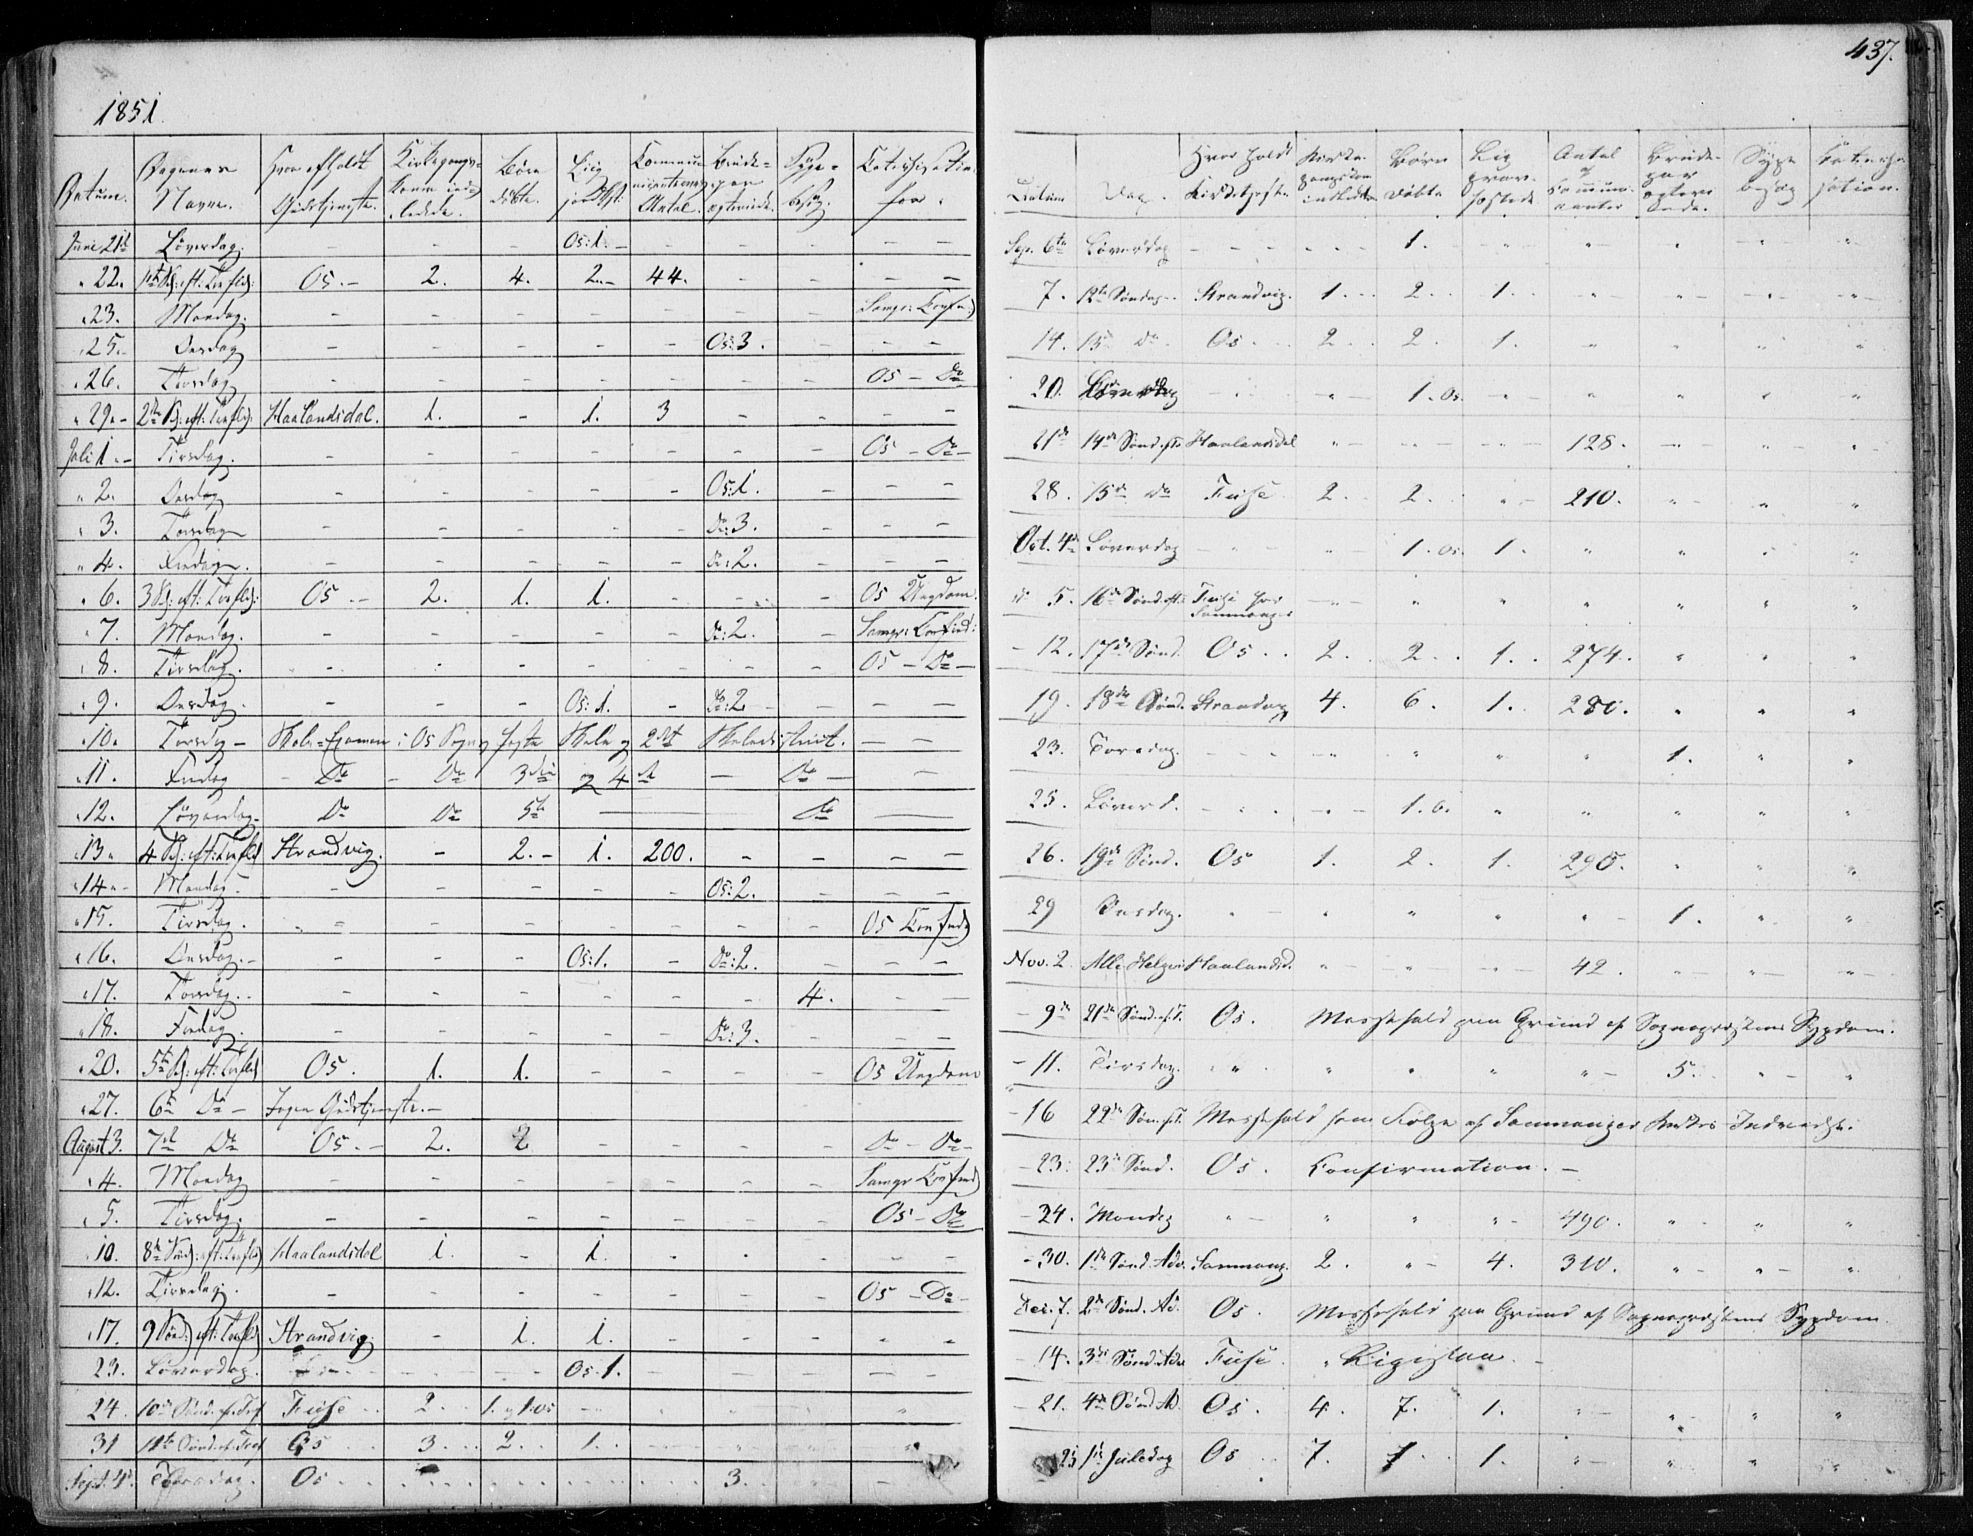 1851.
Datum. Dagenes Navne. Hvor afholdt Gudstjeneste. Kirkegangs-koner ind-ledede. Børn døbte. Liig Communicanternes Antal. Brude-par ægteviede. Syge-besøg. Catechisation for.
Juni 21de Løverdag. - - - Os: 1. - - - - -
" 22. 1ste S: eft: Trefld: Os. - 2. 4. 2. - 44. - - - -
" 23. Mandag. - - - - - - - Samgr: Confd:
" 25. Onsdag - - - - - Os: 3. - - -
" 26. Torsdag - - - - - - - Os - Do
" 29. - 2den S: eft: Trefld: Haalandsdal. 1. - 1. 3 - - - -
Juli 1. - Tirsdag. - - - - - - - Os - Do -
" 2. Onsdag - - - - - Os: 1. - - -
" 3. Torsdag - - - - - Do: 3. - - -
" 4. Fredag. - - - - - Do: 2. - - -
" 6. 3 S: eft: Trefld: Os - 2. 1. 1. - - - Os Ungdom.
" 7. Mandag. - - - - - Do: 2. - Samgr: Confird:
" 8. Tirsdag. - - - - - - - Os - Do -
" 9. Onsdag. - - - Os: 1. - Do: 2 - - -
" 10. Torsdag - Skole-Examen i Os Sogns første Skole og 2det Skoledistrict. - -
" 11. Fredag - Do - Do 3die og 4de - Do - -
" 12. Løverdag. Do Do 5te - Do -
" 13. 4 S: eft: Trefld Strandvig. - 2. - 1. 200. - - - -
" 14. - Mandag - - - - - - Os: 2. - - -
" 15. Tirsdag. - - - - - - - Os Confird
" 16. Onsdag. - - - - Os: 1. - Do: 2. - - -
" 17. Torsdag. - - - - - - - 4. - -
" 18. Fredag. - - - - - Do: 3. - - -
" 20. 5te S: eft: Trefld Os. 1. 1. - - - - Os Ungdom
" 27. 6te Do - Ingen Gudstjeneste. -
August 3. 7de Do Os. - 2. 2 - - - - Do - Do -
" 4. Mandag - - - - - - - Samgr Confird
" 5. Tirsdag. - - - - - - - Os - Do
" 10. 8de Sønd: eft: Trefld Haalandsdal 1. - 1. - - - - -
" 12. Tirsdag. - - - - - - - Os - Do -
" 17. 9 Sønd: eft: Trefld Strandvig. - 1. 1. - - - - -
23. Løverdag. - - - Os. 1. - - - - -
24. 10de Sønd. ef. Tref Fuse 2 1. og 1. Os - - - - "
31 11te Sønd. ef. Tref Os 3. 2. 1. - - - - "
Sept. 4de Torsdag. Os 3. - -
437.
Datum Dag. Hvor holdt Kirketjeneste. Kirke-gangskon indledede Børn døbte Lig Antal af Communi-canter Brude-par Syge besøg Cateche-sation.
Sep. 6te Løverdag - - 1. " " " " "
7. 12te Søndag. Strandvig. 1. 2. 1. " " " "
14. 13de Do. Os 2. 2. 1. " " " " "
20. Løverdag - " 1. Os. " " " " "
21de 14de Sønd. eft. Haalandsdal " " " 128. " " "
28. 15de Do Fuse 2. 2. " 210. " " "
Oct. 4de Løverdag - " 1. Os. 1. " " " "
5. 16de Sønd. eft. Fuse for Sammanger " " " " " " "
- 12. 17de Sønd. Os 2. 2. 1. 274. " " "
19. 18de Sønd. Strandvig 4. 6. 1. 280. " " "
23. Torsdag. - " " " " 1. " "
25. Løverd. - - 1. O. " " " " "
26. 19de Sønd. Os 1. 2. 1. 295. " " "
29 Onsdag. " " " " " 1. " "
Nov. 2 Alle Helgen Haalandsd. " " " 42. " " "
- 9de 21de Sønd. ef. T. Os. Messefald paa Grund af Sognepræstens Sygdom.
- 11. Tirsdag. " " " " " 5. " "
- 16 22de Søn. ef. T. Messefald som Følge af Sammanger Kirkes Indvielse.
- 23. 23de Sønd. Os. Confirmation. -
- 24. Mandag " " " " 490. " " "
- 30. 1ste Sønd. Adv. Sammang. 2. " 4. 310. " " "
Dec. 7. 2de Sønd. Ad. Os. Messefald paa Grund af Sognepræstens Sygdom.
- 14. 3de Sønd. Adv Fuse. " Ligesaa. -
- 21. 4de Sønd. Ad. Os. 4. 7. 1. " " " "
25 1ste Juledag Os 7. 1. 1. " " " "